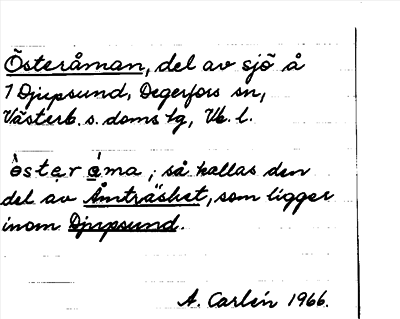 Österåman, del av sjö å
1 Djupsund, Degerfors sn,
Västerb. s. doms tg, Vb. l.
òstẹr å̀ma ; så kallas den
del av Åmträsket, som ligger
inom Djupsund.
A. Carlén 1966.